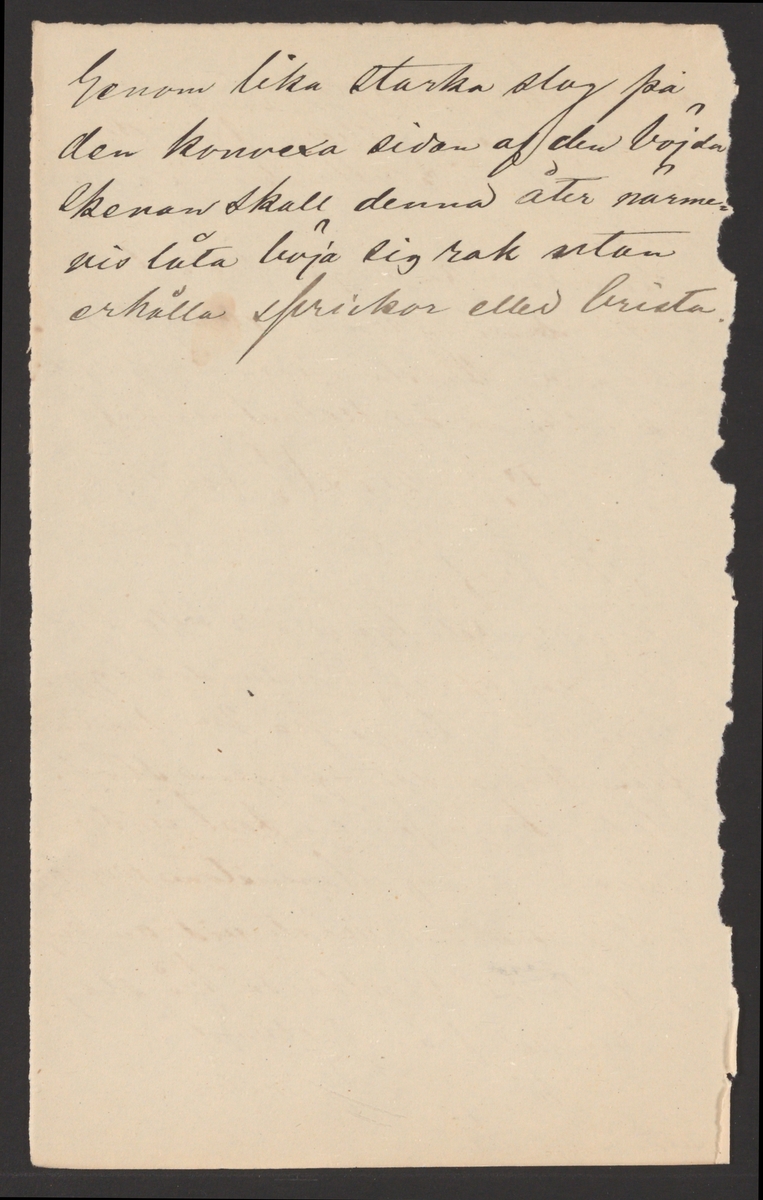 Genom lika starka slag på
den konvexa sidan af den böjda
skenan skall denna åter närme-
vis låta böja sig rak utan
erhålla sprickor eller brista.